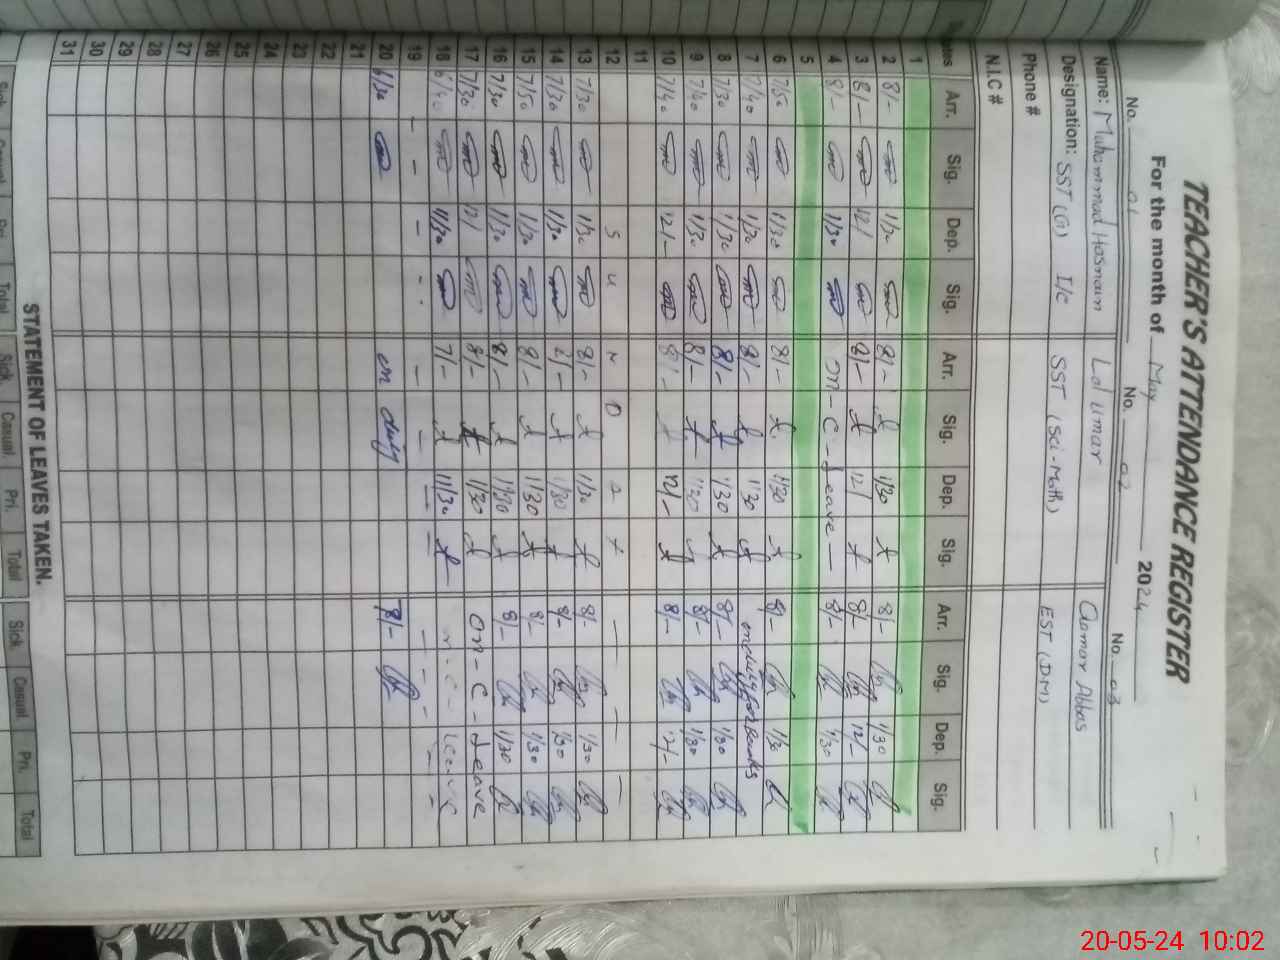 TEACHER'S ATTENDANCE REGISTER
For the month of May 2024
No. 01 No. 02 No. 03
Name: Muhammad Hasnain Lal Umar Aamar Abbas
Designation: SST (G) I/C SST (Sci-Math) EST (DM)
Phone #
N.I.C #
Dates Arr. Sig. Dep. Sig. Arr. Sig. Dep. Sig. Arr. Sig. Dep. Sig.
1
2 8/- 1/30 8/- 1/30 8/- 1/30
3 8/- 12/ 8/- 12/ 8/- 12/-
4 8/- 1/30 on - C - Leave — 8/- 1/30
5
6 7/50 1/30 8/- 1/30 8/- 1/30
7 7/40 1/30 8/- 1/30 on duty for Books
8 7/30 1/30 8/- 1/30 8/- 1/30
9 7/40 1/30 8/- 1/30 8/- 1/30
10 7/40 12/- 8/- 12/- 8/- 12/-
11
12 S U N D a y — — —
13 7/30 1/30 8/- 1/30 8/- 1/30
14 7/30 1/30 8/- 1/30 8/- 1/30
15 7/50 1/30 8/- 1/30 8/- 1/30
16 7/30 1/30 8/- 1/30 8/- 1/30
17 7/30 12/ 8/- 1/30 on - C - Leave
18 6/40 11/30 7/- 11/30 n - C - Leave
19
20 6/30 on duty 7/8/-
21
22
23
24
25
26
27
28
29
30
31
STATEMENT OF LEAVES TAKEN.
Sick Casual Pri. Total Sick. Casual. Pri. Total Sick Casual. Pri. Total
20-05-24 10:02